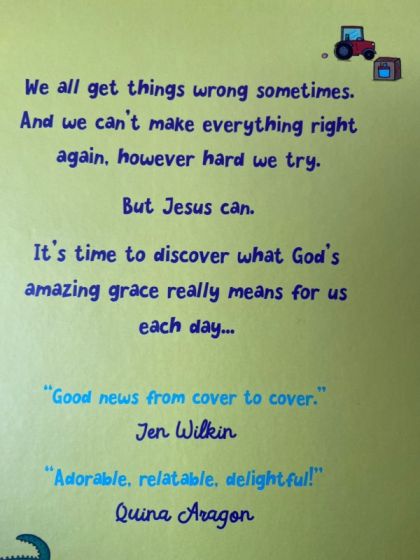 We all get things wrong sometimes.
And we can't make everything right
again, however hard we try.
But Jesus can.
It's time to discover what God's
amazing grace really means for us
each day...
"Good news from cover to cover."
Jen Wilkin
"Adorable, relatable, delightful!"
Quina Aragon